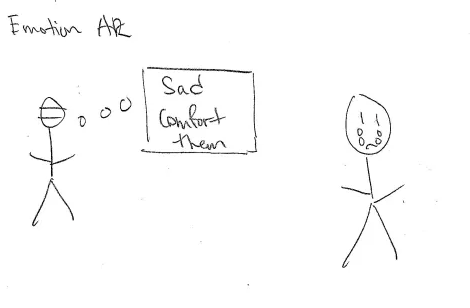 Emotion AR
Sad
Comfort
them